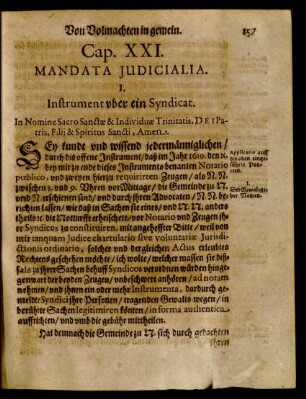 Von Volmachten in gemein. 157
Cap. XXI.
MANDATA JUDICIALIA.
I.
Instrument vber ein Syndicat.
In Nomine Sacro Sanctæ & Individuæ Trinitatis, DEI Pa-
tris, Filij & Spiritus Sancti, Amen.
SEy kunde vnd wissend jedermänniglichen/
durch diß offene Instrument/ daß im Jahr 1619. den
bey mir zu ende dieses Instruments benanten Notario
publico, vnd zweyen hierzu requirirten Zeugen/ als N. N.
zwischen 8. vnd 9. Vhren vor Mittage/ die Gemeinde zu N.
vnd N. erschienen sind/ vnd durch ihren Advocaten/ N. N. be-
richten lassen/ wie daß in Sachen sie eines/ vnd N. N. an-
theils ic die Notturfft erheischete/ vor Notario vnd Zeugen jh-
re Syndicos zu constituiren, mit angeheffter Bitte/ weil von
mir tanquam Judice chartulario sive voluntariæ Jurisdi-
ctionis ordinario, solcher vnd dergleichen Actus erleubtes
Rechtens geschehen möchte/ ich wolte/ welcher massen sie diß-
fals zu jhrer Sachen behuff Syndicos verordnen würden hinge-
genwart der beyden Zeugen/ vnd schwert anhören/ ad notam
nehmen/ vnd jhnen ein oder mehr Instrumenta, dardurch ge-
meldte Syndici jhre Personen/ tragenden Gewalts wegen/ in
berührte Sachen legitimiren könten/ in forma authentica
auffrichten/ vnd vmb die gebühr mittheilen.
Hat demnach die Gemeinde zu N. sich durch gedachten
ihren
Applicatio auff
die oben einge-
führte
1.